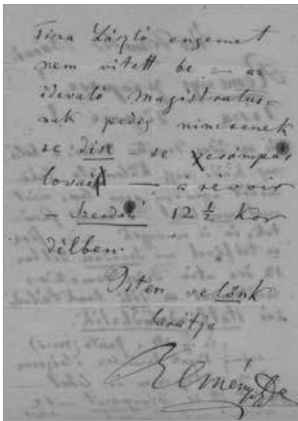 Tisza László engemet
nem vitett be – az
idevaló magistratus-
nak pedig nincsenek
se disz – se csámpás
lovai – a revoir
– Szerdán 12 ½ kor
délben.
Isten velönk
barátja
Reményi Ede